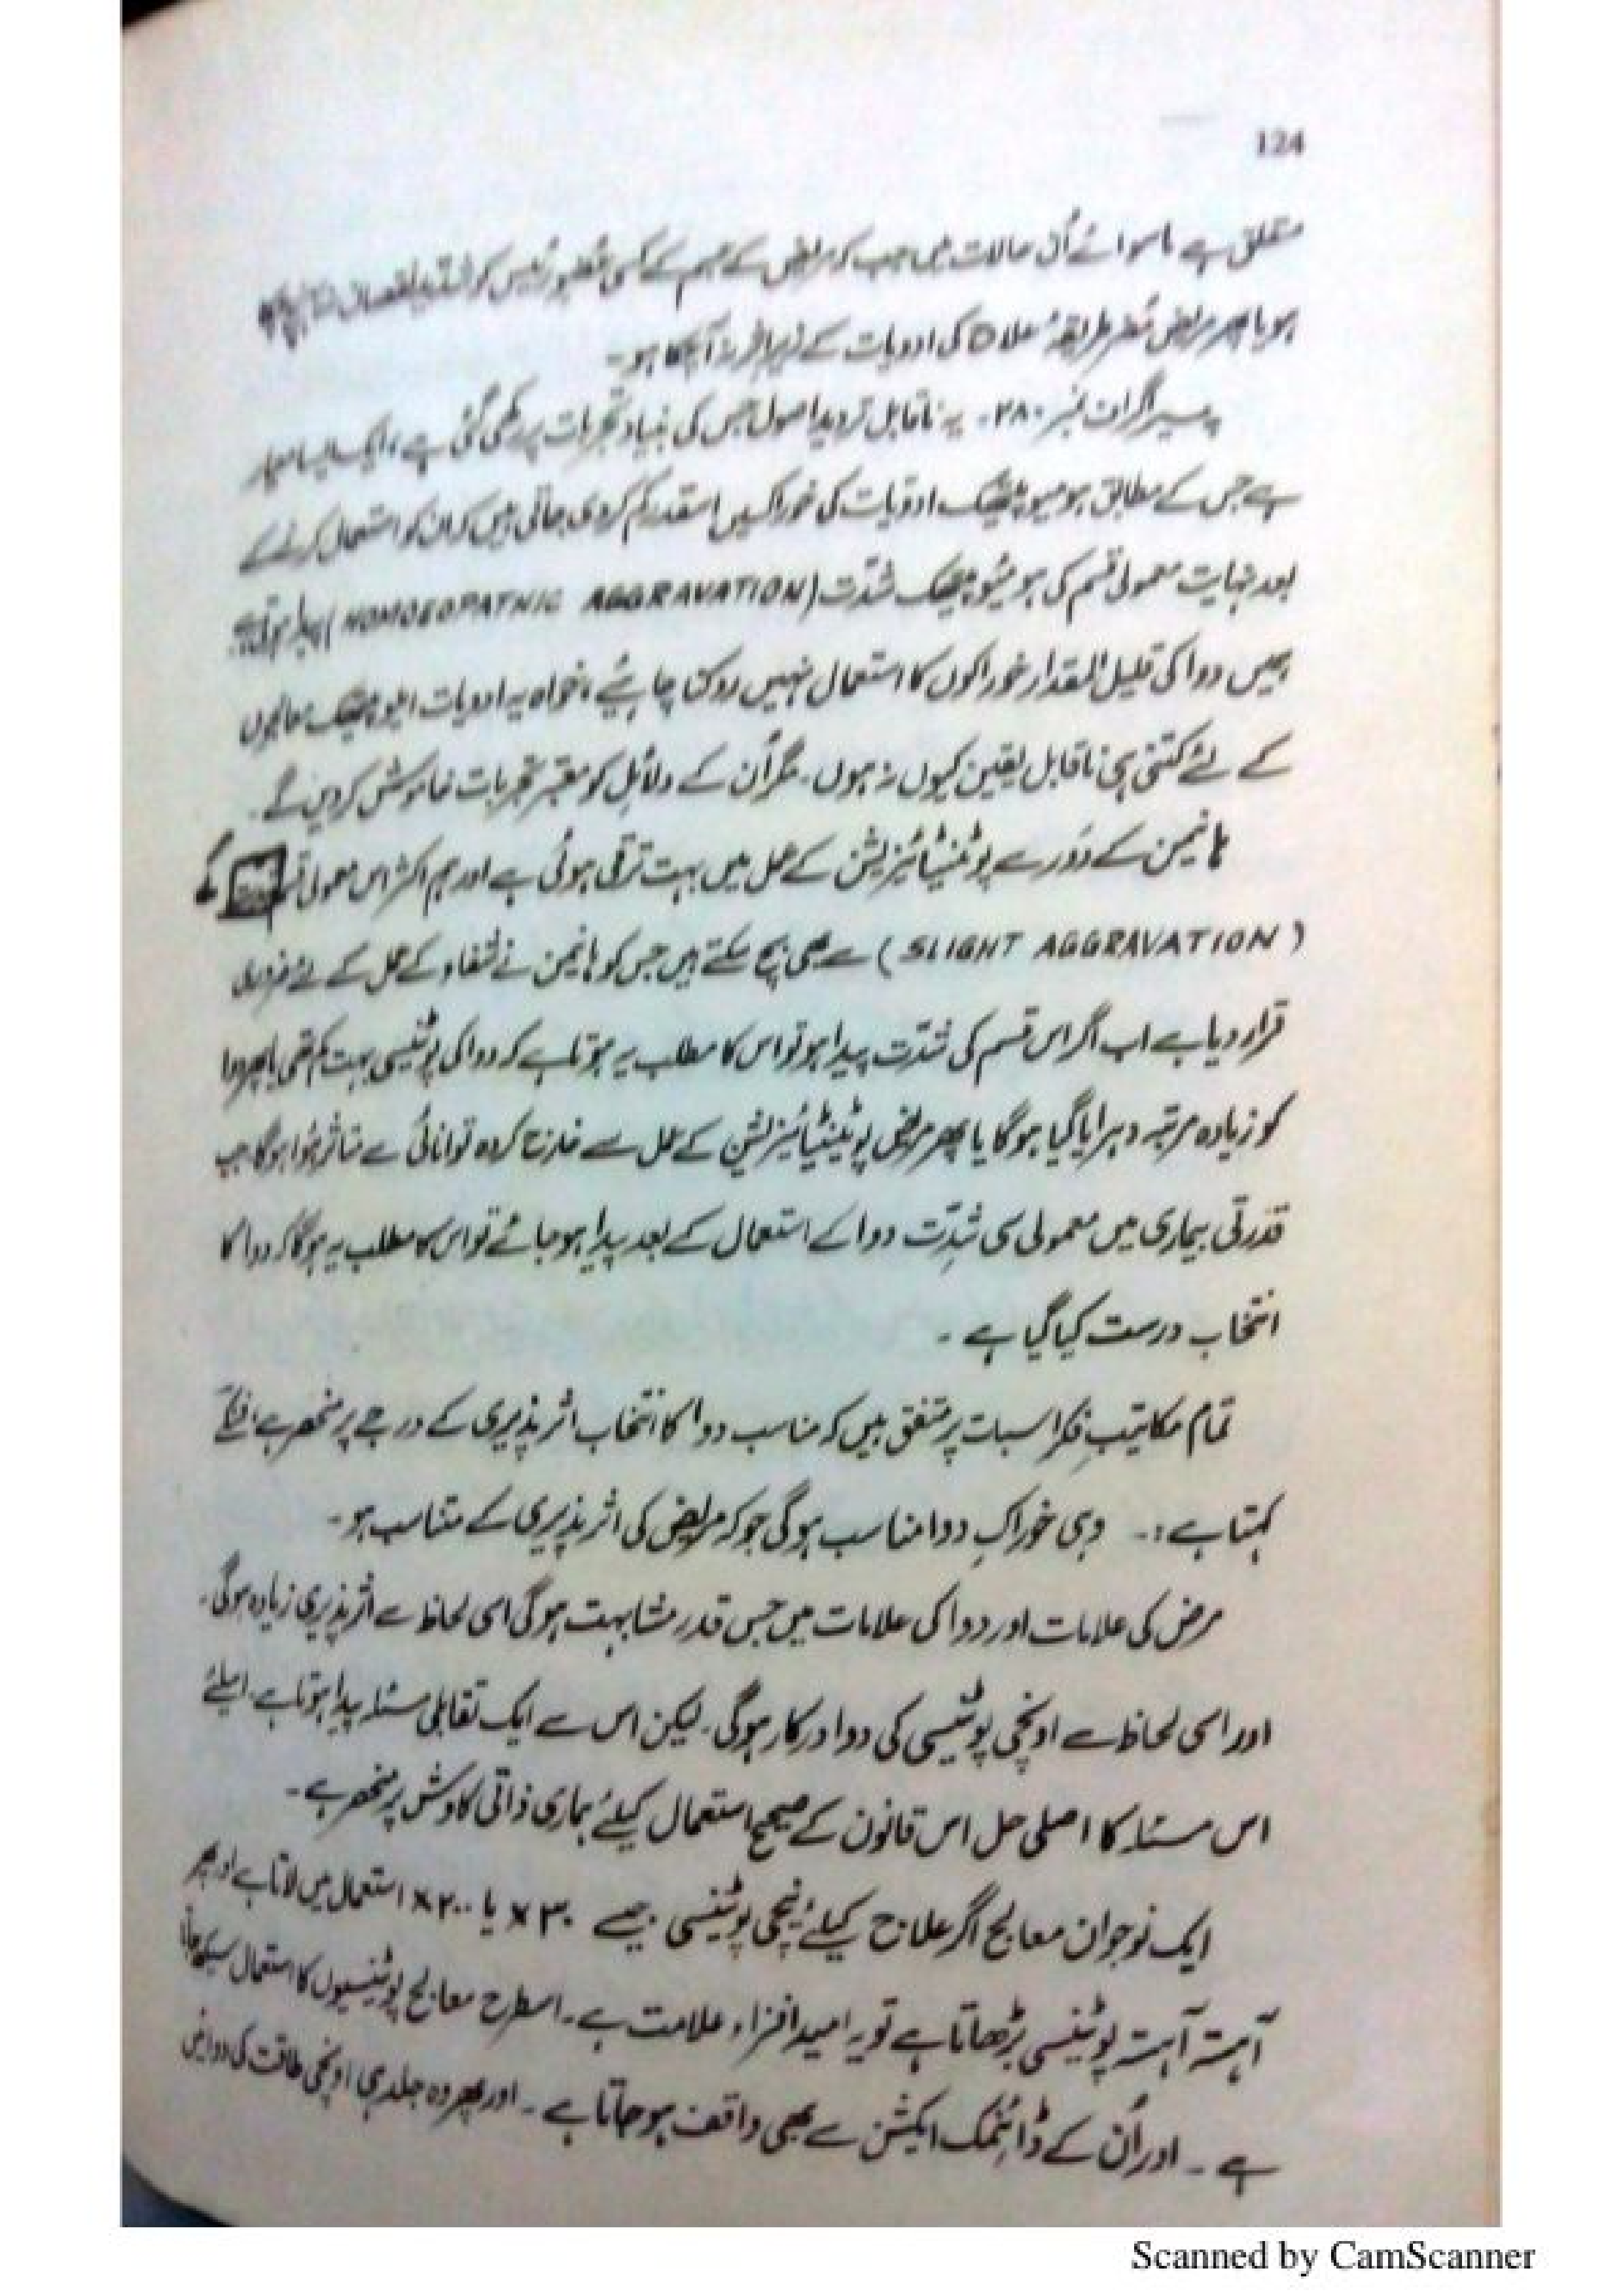 124
متعلق ہے ماسوائے اُن حالات میں جب کہ مریض کے جسم کے کسی عُضوِ رئیس کو شدید نقصان
ہو یا پھر مریض مُضر طریقۂ علاج کی ادویات کے زیرِ اثر رہ چکا ہو۔
پیراگراف نمبر ۲۸۰۔ یہ ناقابلِ تردید اصول جس کی بنیاد تجربات پر رکھی گئی ہے، ایک ایسا معیار
ہے جس کے مطابق ہومیوپیتھک ادویات کی خوراکیں اسقدر کم کر دی جاتی ہیں کہ ان کو استعمال کرنے کے
بعد نہایت معمولی قسم کی ہومیوپیتھک شدّت (HOMOEOPATHIC AGGRAVATION) پیدا ہوتی ہے۔
ہمیں دوا کی قلیل المقدار خوراکوں کا استعمال نہیں روکنا چاہیئے، خواہ یہ ادویات ایلوپیتھک معالجوں
کے لئے کتنی ہی ناقابلِ یقین کیوں نہ ہوں۔ مگر اُن کے دلائل کو معتبر تجربات خاموش کر دیں گے۔
ہانیمن کے دَور سے پوٹینٹائیزیشن کے عمل میں بہت ترقی ہوئی ہے اور ہم اکثر اس معمولی
(SLIGHT AGGRAVATION) سے بھی بچ سکتے ہیں جس کو ہانیمن نے شفاء کے عمل کے لئے ضروری
قرار دیا ہے اب اگر اس قسم کی شدّت پیدا ہو تو اس کا مطلب یہ ہوتا ہے کہ دوا کی پوٹینسی بہت کم تھی یا پھر دوا
کو زیادہ مرتبہ دہرایا گیا ہوگا یا پھر مریض پوٹینٹیائیزیشن کے عمل سے خارج کردہ توانائی سے متاثر ہوا ہوگا جب
قدرتی بیماری میں معمولی سی شدّت دوا کے استعمال کے بعد پیدا ہو جائے تو اس کا مطلب یہ ہوگا کہ دوا کا
انتخاب درست کیا گیا ہے۔
تمام مکاتیبِ فکر اسبات پر متفق ہیں کہ مناسب دوا کا انتخاب اثر پذیری کے درجے پر منحصر ہے۔
کہتا ہے:۔ وہی خوراکِ دوا مناسب ہوگی جو کہ مریض کی اثر پذیری کے متناسب ہو۔
مرض کی علامات اور دوا کی علامات میں جس قدر مشابہت ہوگی اسی لحاظ سے اثر پذیری زیادہ ہوگی۔
اور اسی لحاظ سے اونچی پوٹینسی کی دوا درکار ہوگی۔ لیکن اس سے ایک تقابلی مسئلہ پیدا ہوتا ہے۔ اسلئے
اس مسئلہ کا اصلی حل اس قانون کے صحیح استعمال کیلئے ہماری ذاتی کاوش پر منحصر ہے۔
ایک نوجوان معالج اگر علاج کیلئے نیچی پوٹینسی جیسے ۳۰x یا ۲۰۰x استعمال میں لاتا ہے اور پھر
آہستہ آہستہ پوٹینسی بڑھاتا ہے تو یہ امید افزاء علامت ہے۔ اسطرح معالج پوٹینسیوں کا استعمال سیکھ جاتا
ہے۔ اور اُن کے ڈائنمک ایکشن سے بھی واقف ہو جاتا ہے۔ اور پھر وہ جلد ہی اونچی طاقت کی دوائیں
Scanned by CamScanner